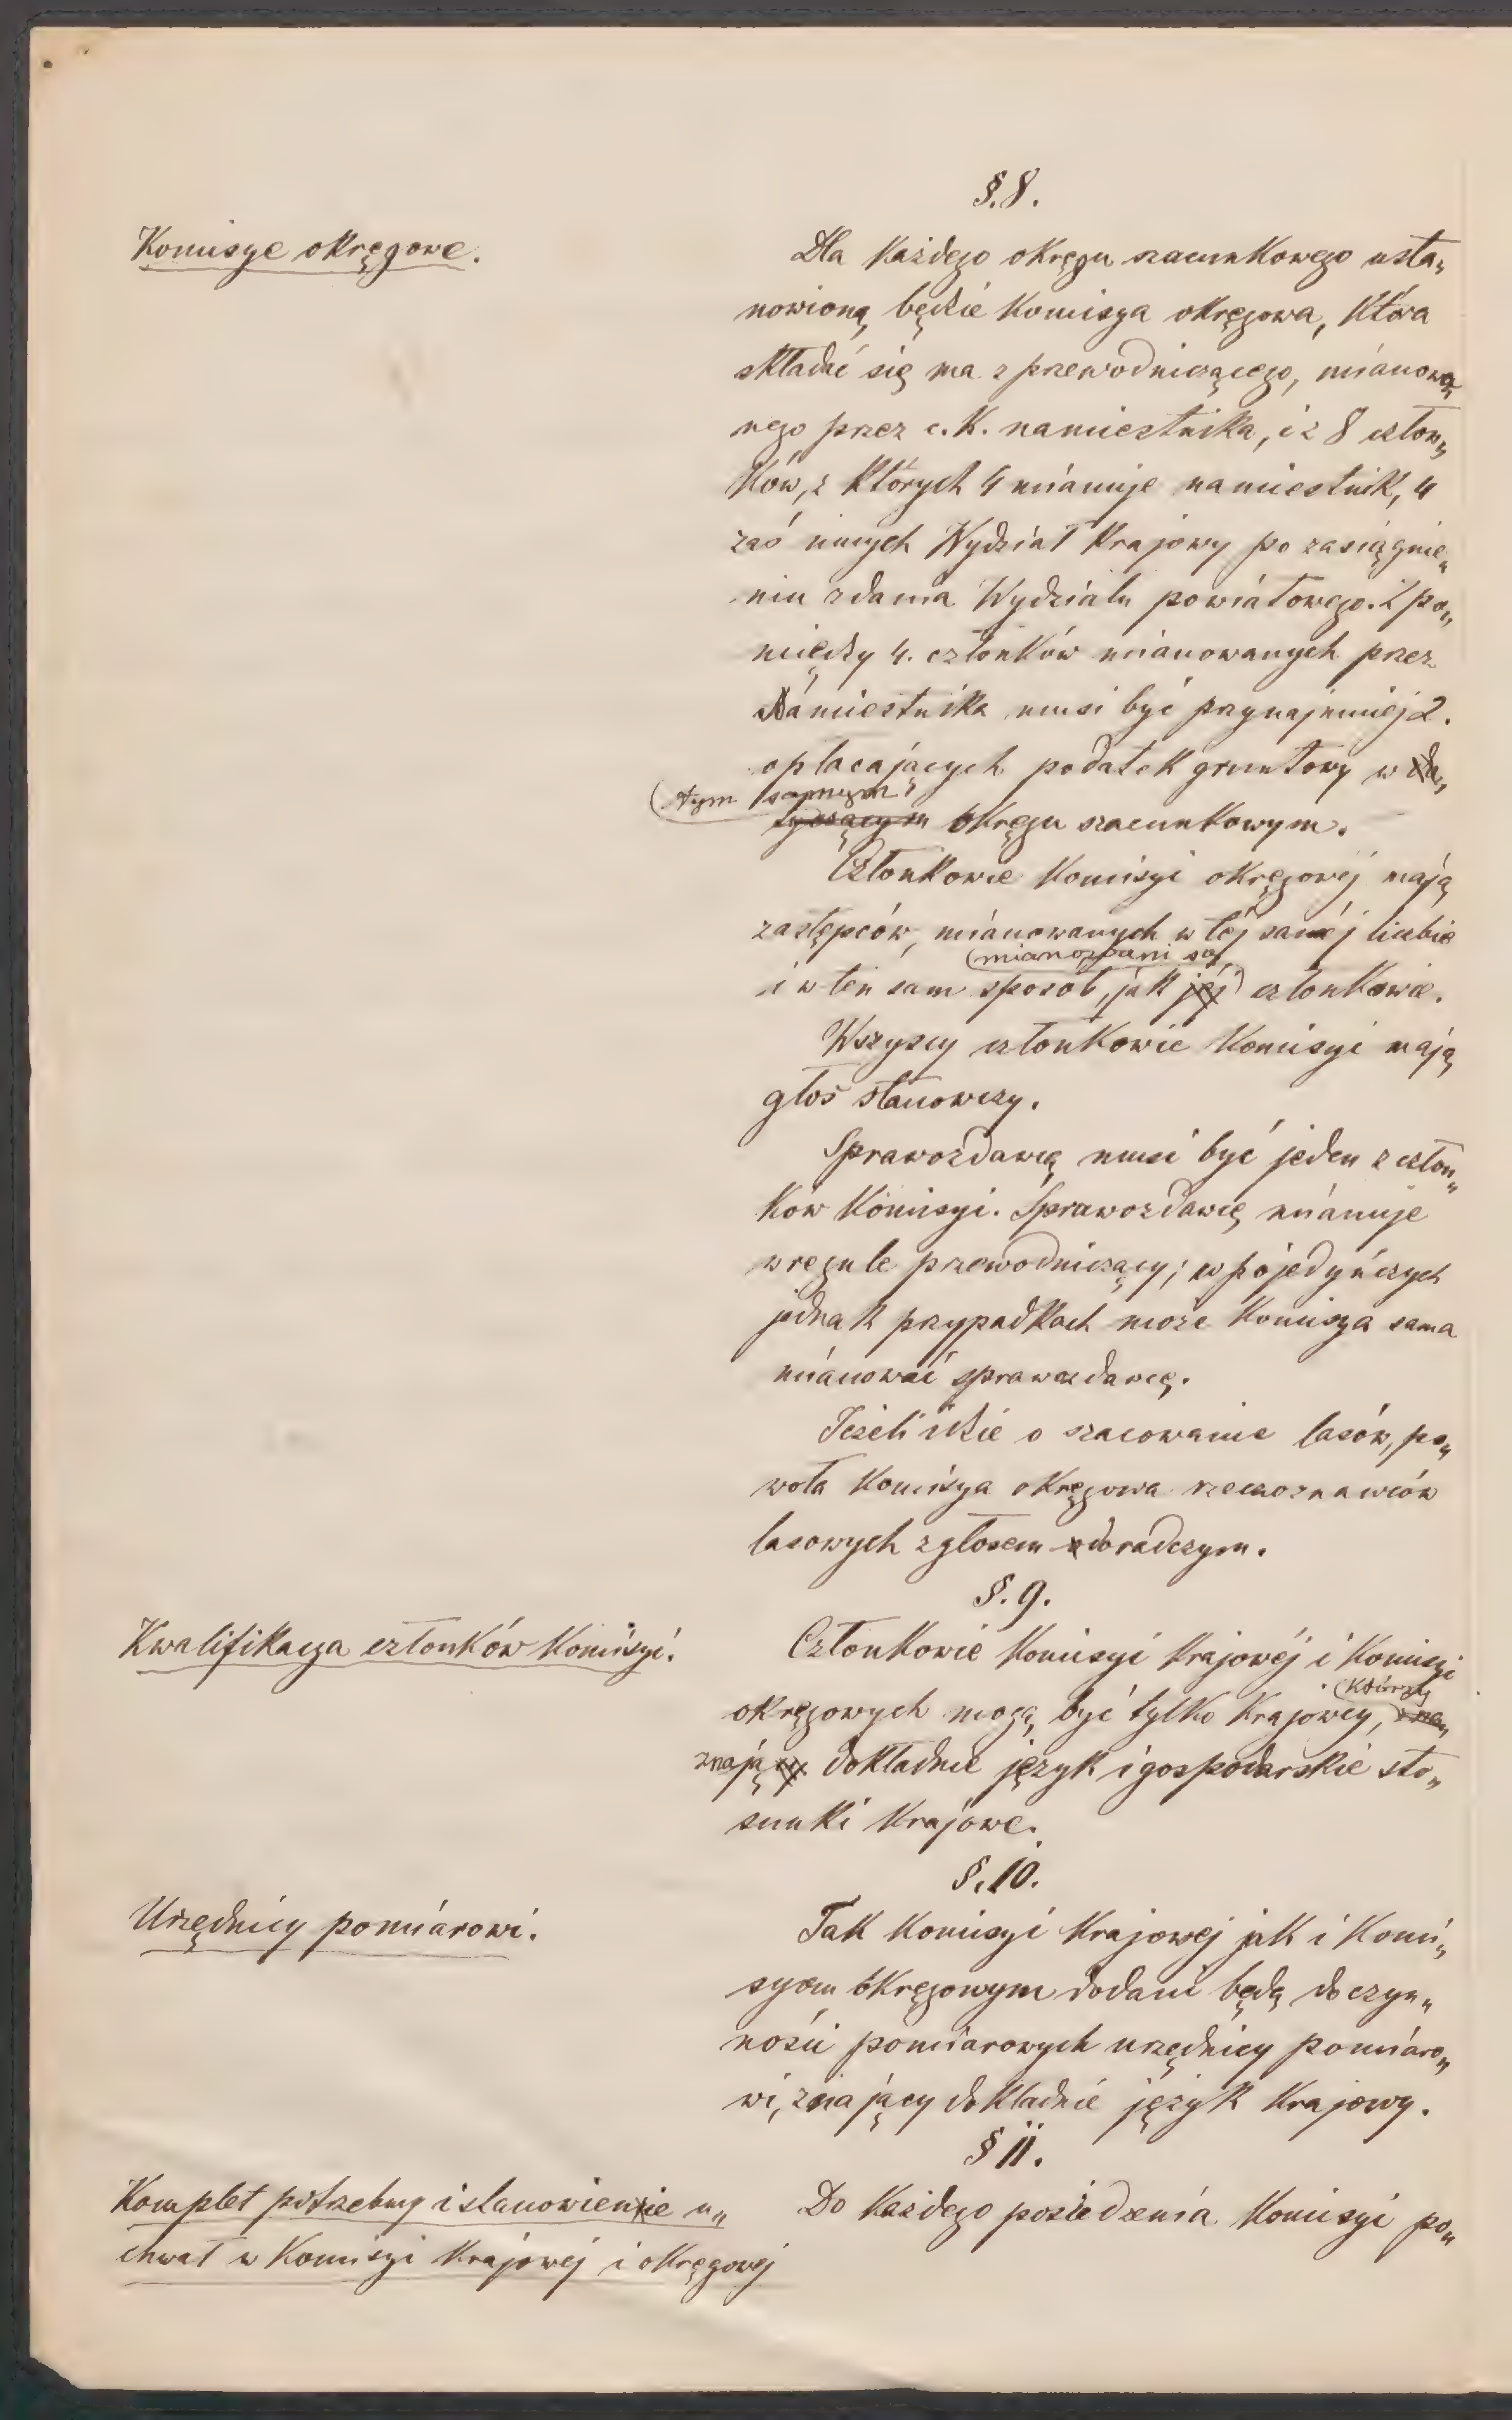 §. 8.
Komisye okręgowe.
Dla każdego okręgu szacunkowego usta„
nowioną będzie Komisya okręgowa, która
składać się ma z przewodniczącego, mianowa„
nego przez c. k. namiestnika, i z 8 człon„
ków, z których 4 mianuje namiestnik, 4
zaś innych Wydział krajowy po zasiągnie„
niu zdania Wydziału powiatowego. Z po„
między 4. członków mianowanych przez
Namiestnika musi być przynajmniej 2.
opłacających podatek gruntowy w do„
tym samym
tyczącym okręgu szacunkowym.
Członkowie Komisyi okręgowej mają
zastępców, mianowanych w tej samej liczbie
mianowani są
i w ten sam sposób, jak jej członkowie.
Wszyscy członkowie Komisyi mają
głos stanowczy.
Sprawozdawcą musi być jeden z człon„
ków Komisyi. Sprawozdawcę mianuje
w regule przewodniczący; w pojedyńczych
jednak przypadkach może Komisya sama
mianować sprawozdawcę.
Jeżeli idzie o szacowanie lasów, po„
woła Komisya okręgowa rzeczoznawców
lasowych z głosem doradczym.
§. 9.
Kwalifikacya członków Komisyi.
Członkowie Komisyi krajowéj i Komisyi
którzy
okręgowych mogą być tylko krajowcy, zna„
znają cy dokładnie język i gospodarskie sto„
sunki krajowe.
§. 10.
Urzędnicy pomiarowi.
Tak Komisyi krajowej jak i Komi„
syom okręgowym dodani będą do czyn„
ności pomiarowych urzędnicy pomiaro„
wi, znający dokładnie język krajowy.
§ 11.
Komplet potrzebny i stanowienie u„
chwał w Komisyi krajowej i okręgowej
Do każdego posiedzenia Komisyi po„